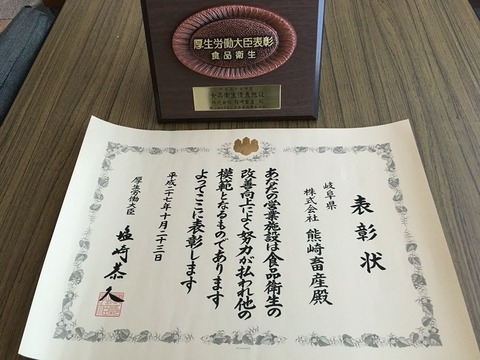 厚生労働大臣表彰
食品衛生
食品衛生優良施設
表彰状
岐阜県
株式会社 熊崎畜産殿
あなたの営業施設は食品衛生の
改善向上によく努力が払われ他の
模範となるものであります
よってここに表彰します
平成二十七年十月二十三日
厚生労働大臣
塩崎恭久